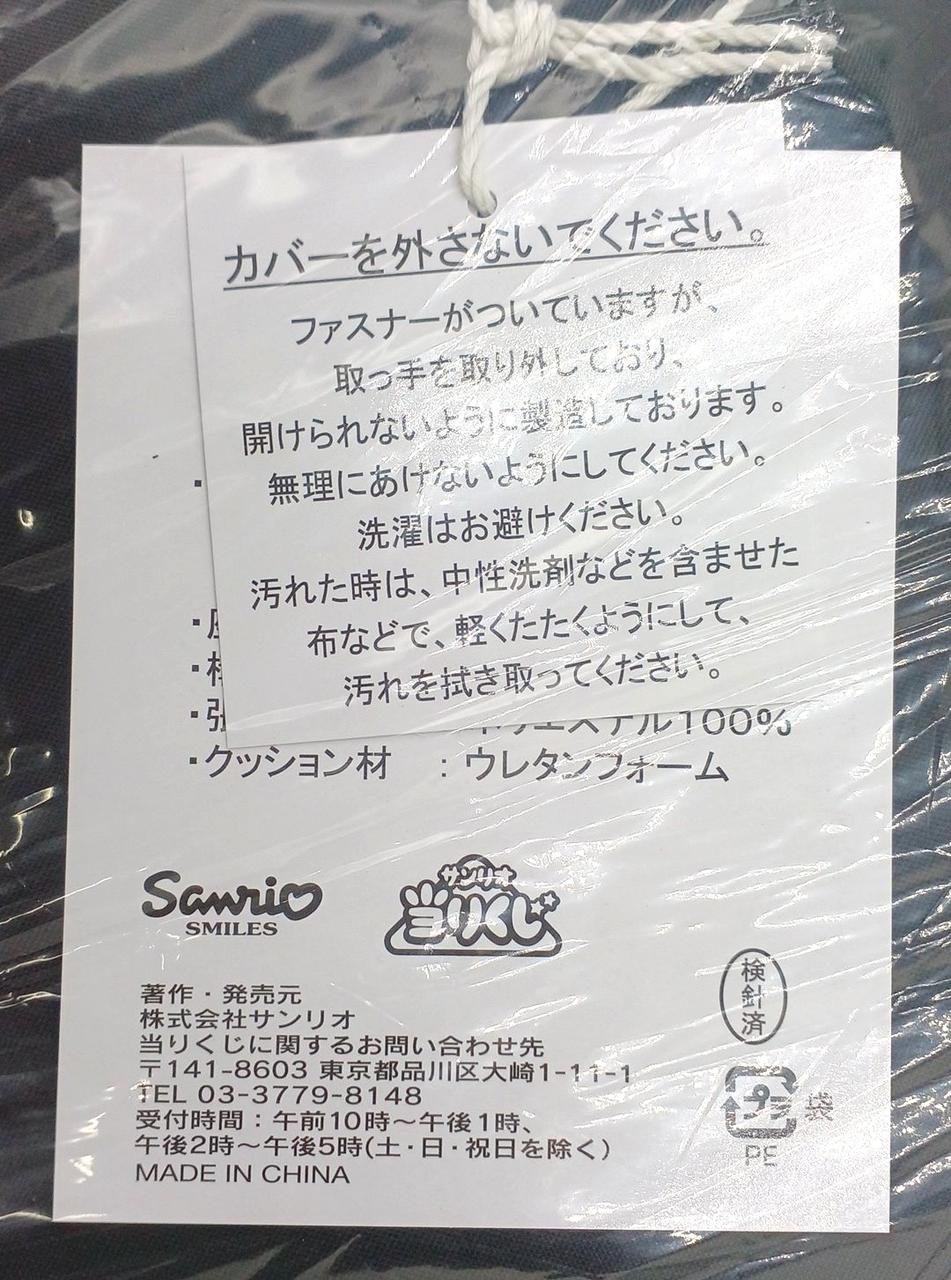 カバーを外さないでください。
ファスナーがついていますが、
取っ手を取り外しており、
開けられないように製造しております。
無理にあけないようにしてください。
洗濯はお避けください。
汚れた時は、中性洗剤などを含ませた
布などで、軽くたたくようにして、
汚れを拭き取ってください。
ポリエステル100%
・クッション材 : ウレタンフォーム
Sanrio
SMILES
サンリオ
当りくじ
著作・発売元
株式会社サンリオ
当りくじに関するお問い合わせ先
〒141-8603 東京都品川区大崎1-11-1
TEL 03-3779-8148
受付時間:午前10時〜午後1時、
午後2時〜午後5時(土・日・祝日を除く)
MADE IN CHINA
検針済
プラ 袋
PE